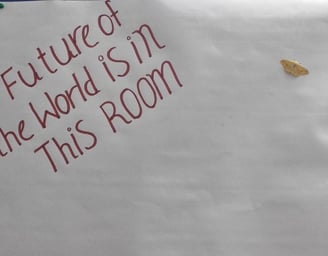 Future of
the World is in
This ROOM